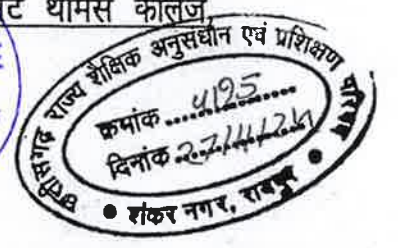 ट थॉमस कॉलेज,
छत्तीसगढ़ राज्य शैक्षिक अनुसंधान एवं प्रशिक्षण परिषद
क्रमांक 4195
दिनांक
शंकर नगर, रायपुर